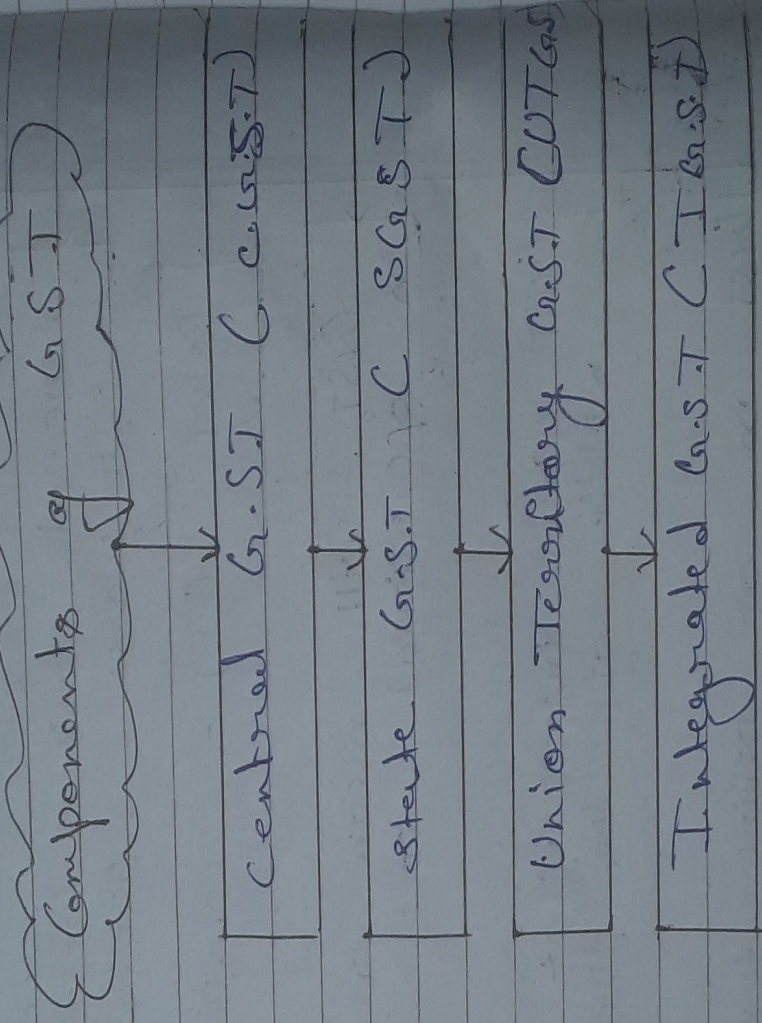 Components of GST
Central G.ST (C.G.S.T)
State G.S.T (SGST)
Union Territory G.S.T (UTGS
Integrated G.S.T (IG.S.T)